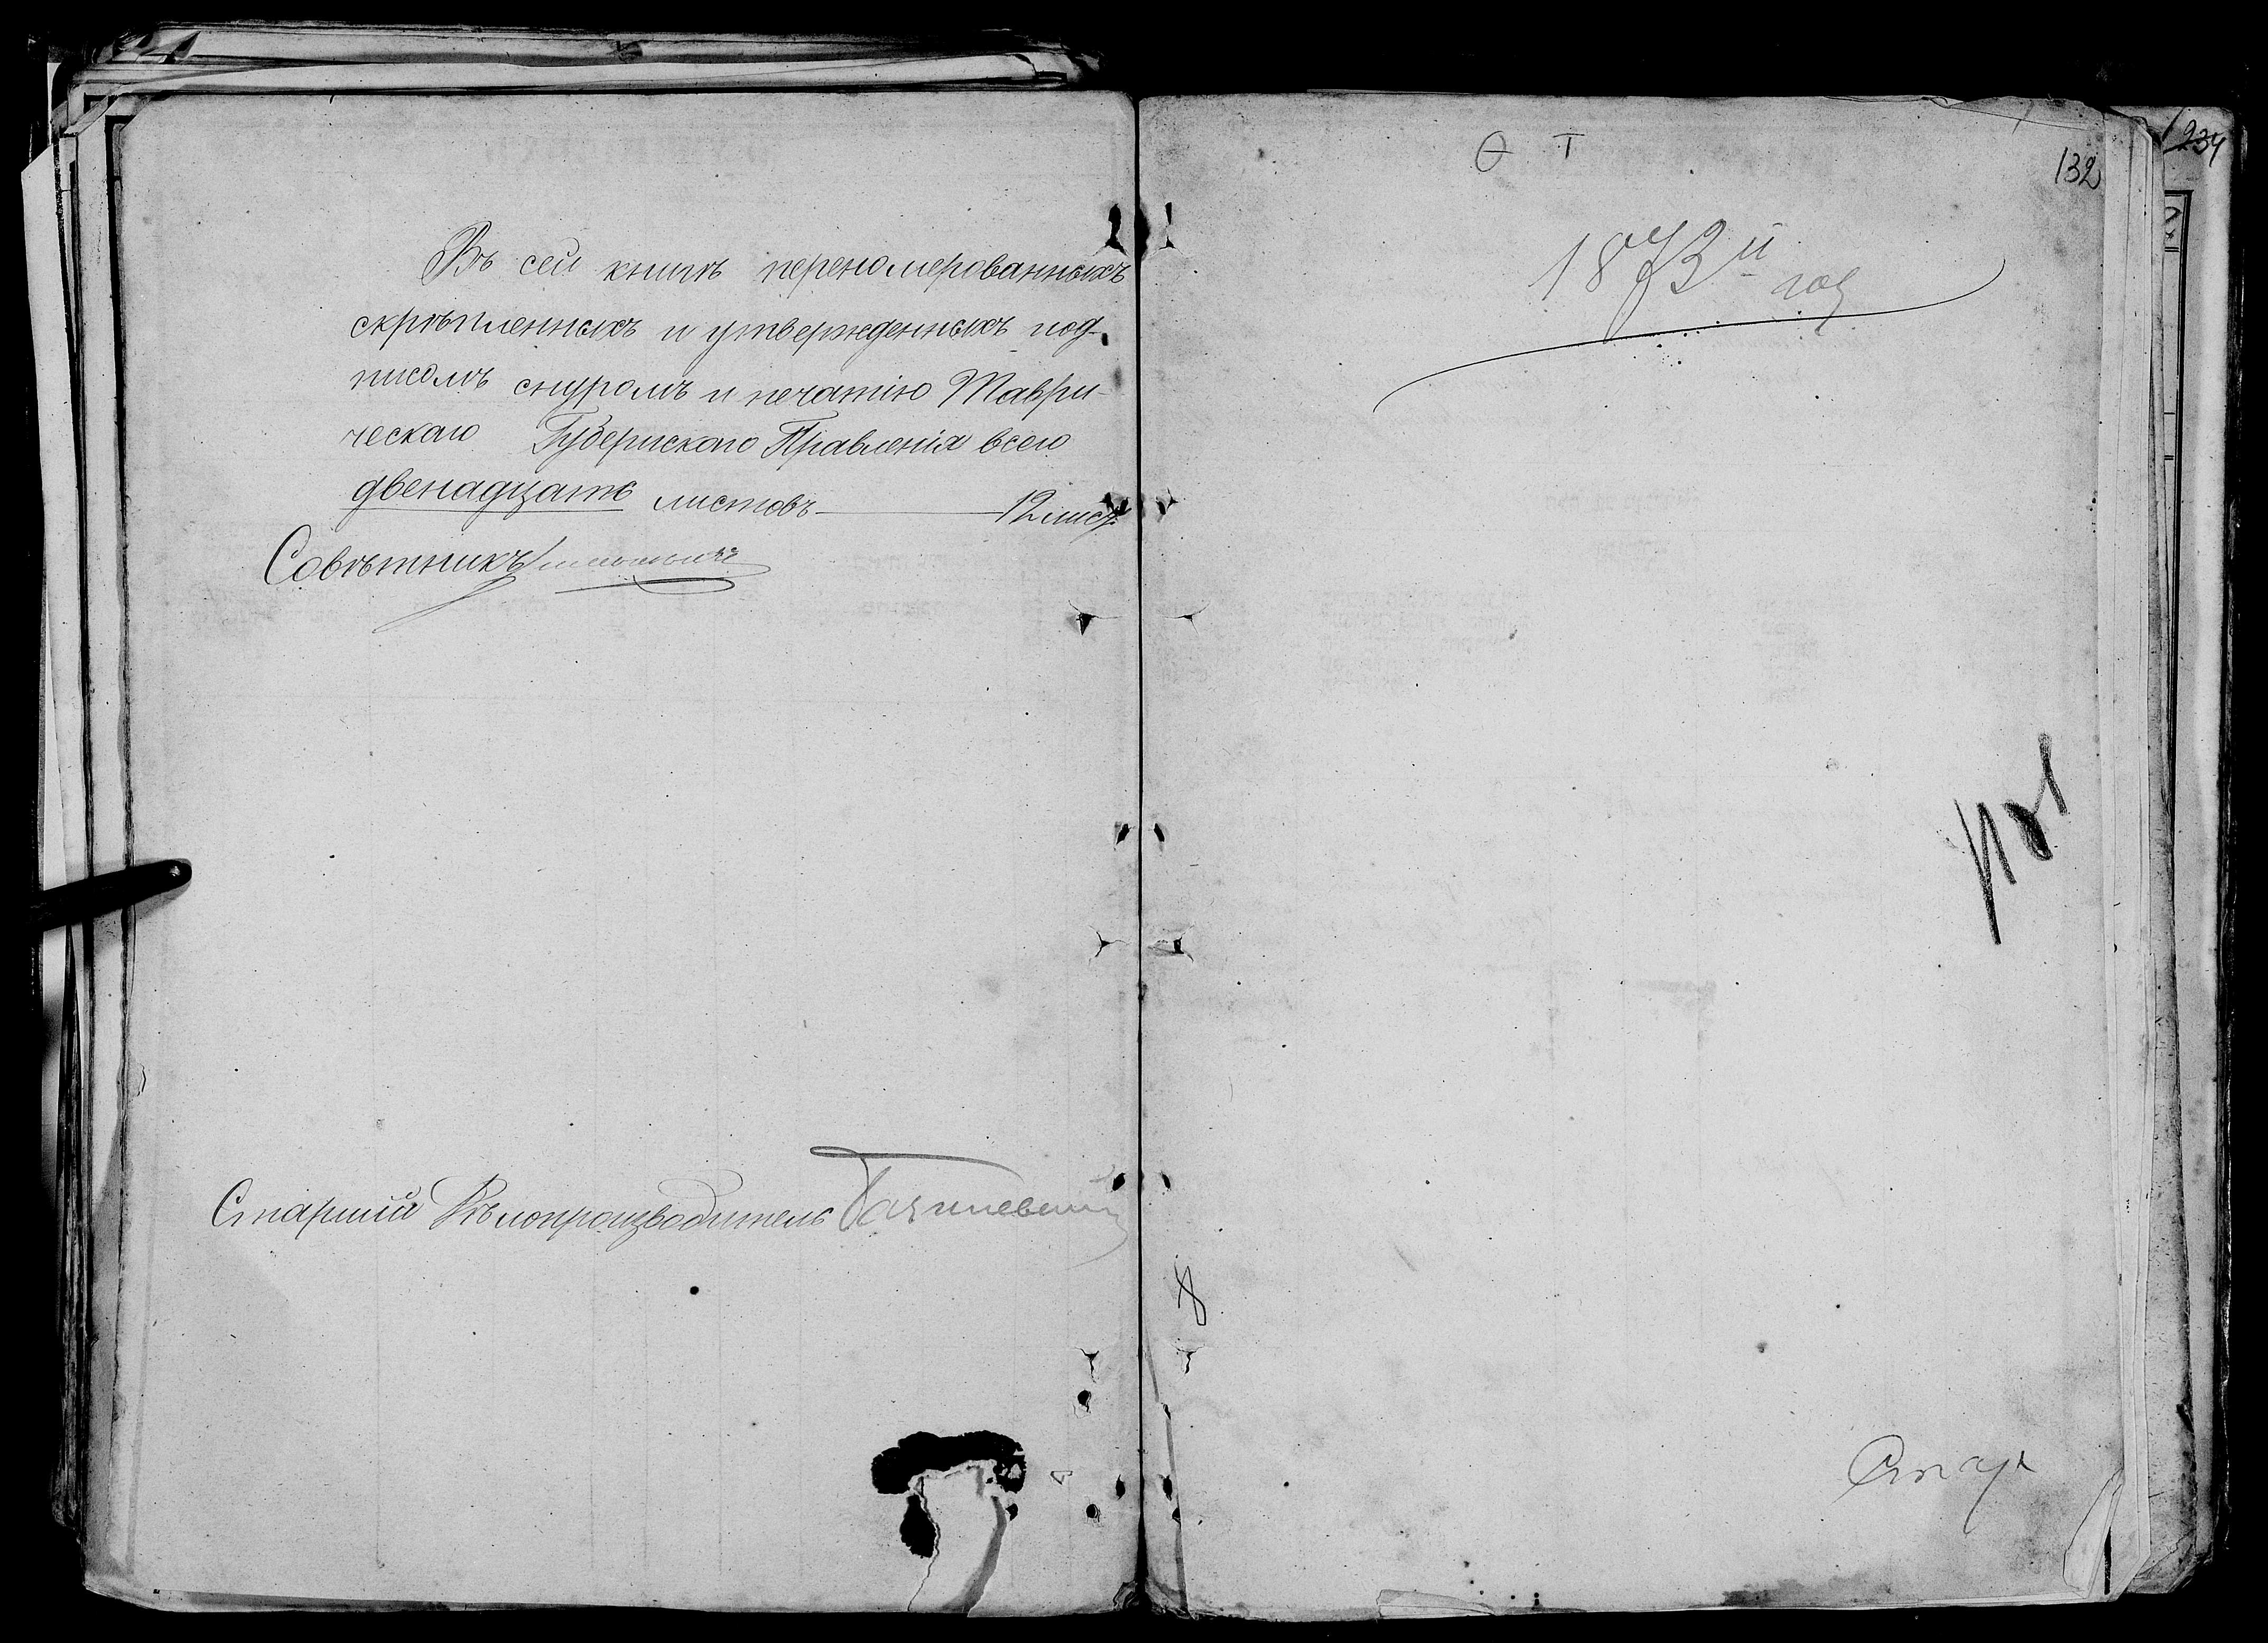 Въ сей книгѣ переномерованныхъ
скрѣпленныхъ и утвержденныхъ под-
писомъ снуромъ и печатію Таври-
ческаго Губернскаго Правленія всего
двенадцать листовъ 12 лист.
Совѣтникъ
Старшій Дѣлопроизводитель
Ѳ Т
132
234
1873й год